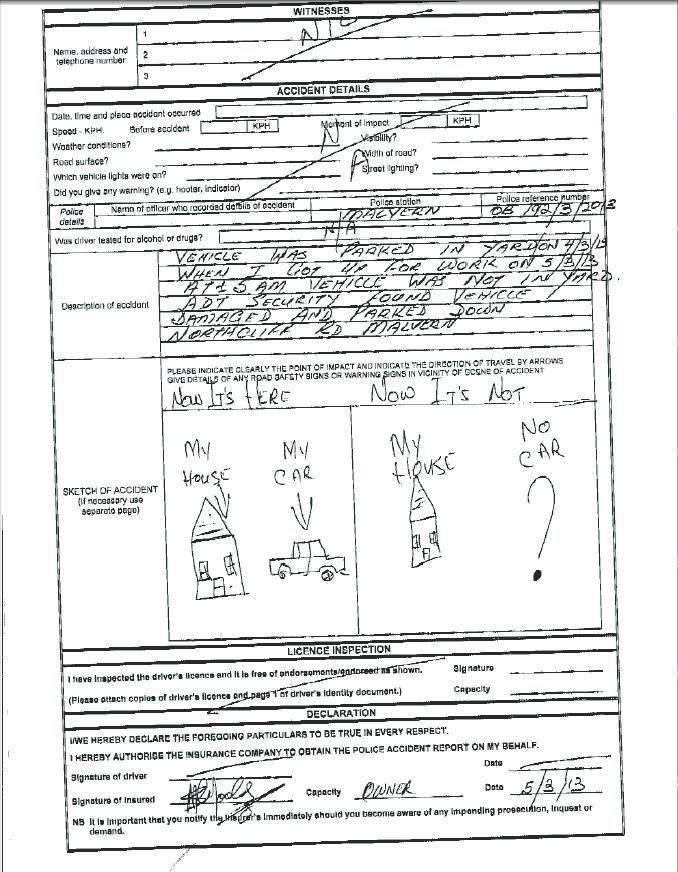 WITNESSES
Name, address and telephone number
1 NIL
2
3
ACCIDENT DETAILS
Date, time and place accident occurred
Speed - KPH. Before accident KPH Moment of Impact KPH
Weather conditions? N Visibility?
Road surface? A Width of road?
Which vehicle lights were on? Street lighting?
Did you give any warning? (e.g. hooter, indicator)
Police details
Name of officer who recorded details of accident Police station Police reference number
MALVERN OB 192/3/2013
Was driver tested for alcohol or drugs? N/A
Description of accident
VEHICLE WAS PARKED IN YARD ON 4/3/13
WHEN I GOT UP FOR WORK ON 5/3/13
AT 5 AM VEHICLE WAS NOT IN YARD.
ADT SECURITY FOUND VEHICLE
DAMAGED AND PARKED DOWN
NORTHCLIFF RD MALVERN
PLEASE INDICATE CLEARLY THE POINT OF IMPACT AND INDICATE THE DIRECTION OF TRAVEL BY ARROWS
GIVE DETAILS OF ANY ROAD SAFETY SIGNS OR WARNING SIGNS IN VICINITY OF SCENE OF ACCIDENT
NOW IT'S HERE NOW IT'S NOT
SKETCH OF ACCIDENT
(if necessary use
separate page)
MY HOUSE
MY CAR
MY HOUSE
NO CAR
?
LICENCE INSPECTION
I have inspected the driver's licence and it is free of endorsements/endorsed as shown. Signature
(Please attach copies of driver's licence and page 1 of driver's identity document.) Capacity
DECLARATION
I/WE HEREBY DECLARE THE FOREGOING PARTICULARS TO BE TRUE IN EVERY RESPECT.
I HEREBY AUTHORISE THE INSURANCE COMPANY TO OBTAIN THE POLICE ACCIDENT REPORT ON MY BEHALF.
Signature of driver Date
Signature of Insured Capacity OWNER Date 5/3/13
NB It is important that you notify the Insurer's immediately should you become aware of any impending prosecution, inquest or
demand.